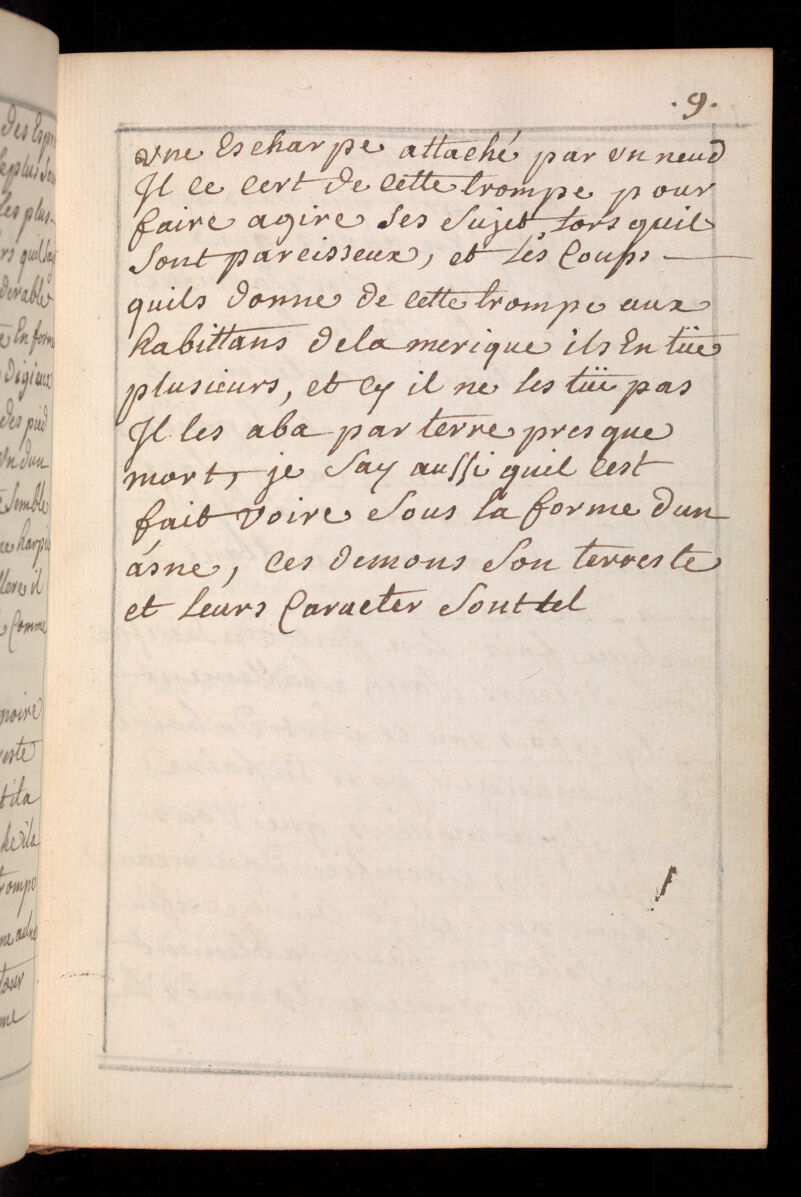 .9.
vne Escharpe attaché par vn neud
Il ce cert de cette trompe pour
faire agire ses sujet, lors quil
sont pareisseux, et les Coups
quils donne de cette trompe aux
habittans dela merique ils En tüe
plusieurs, et cy il ne les tüe pas
Il les aba par terre presque
mort, je say aussi quil cest
fait voire sous la forme dun
ásne, ces demons son terreste
et leurs Caracter sont tel